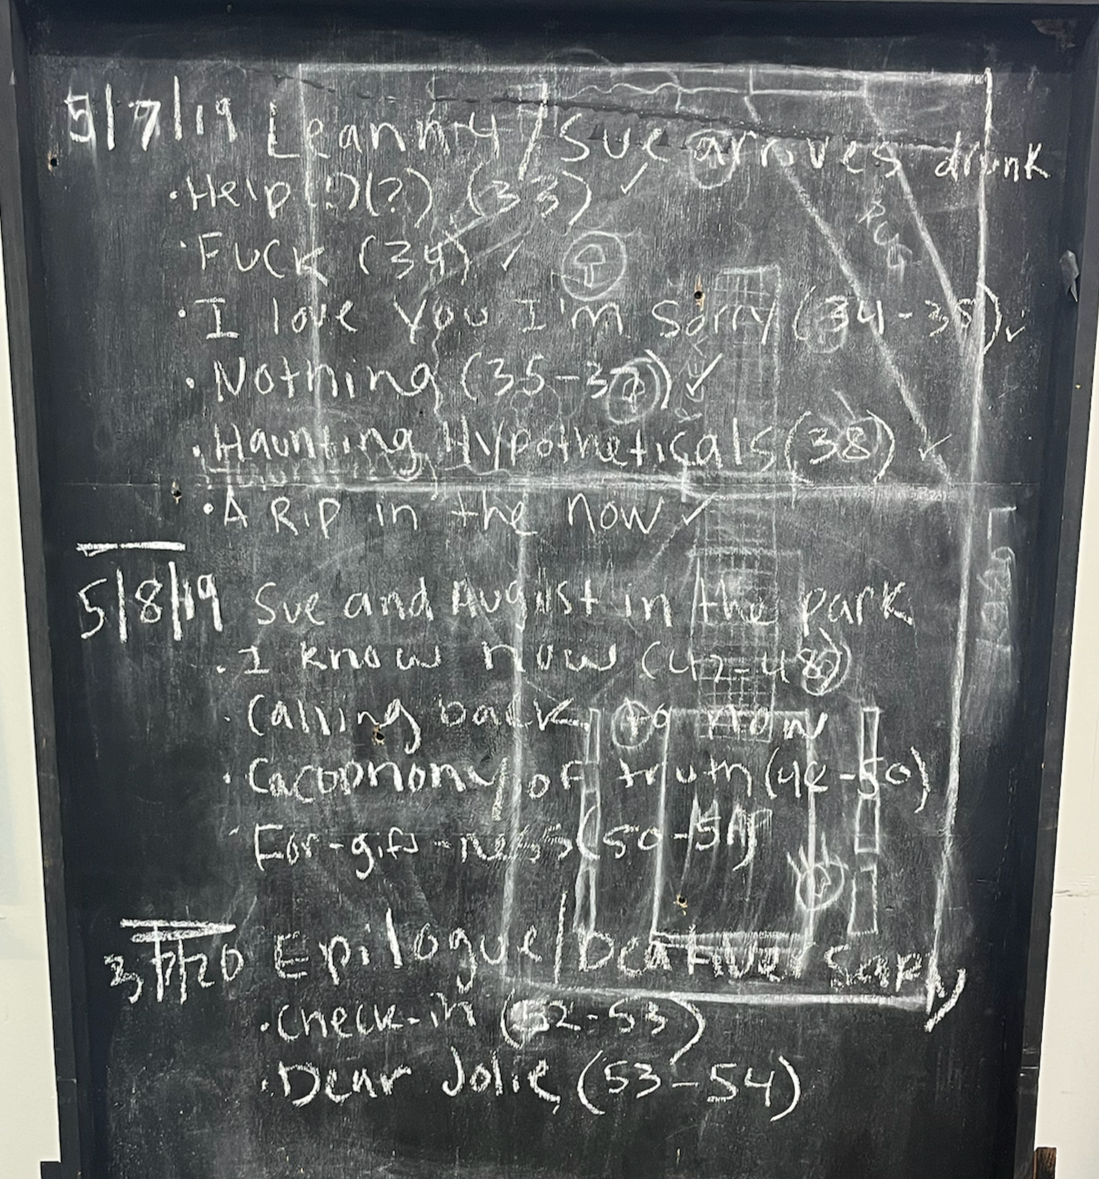 5/7/19 Leann y / Sue arrives drunk
· Help (!)(?) (33) ✓
· FUCK (34) ✓
· I love you I'm Sorry (34-35) ✓
· Nothing (35-37) ✓
· Haunting Hypotheticals (38) ✓
· A Rip in the now ✓
RUG
5/8/19 Sue and August in the park
· I know now (42-48)
· Calling back to now
· Cacophony of truth (48-50)
· For-gift-ness (50-51)
3/7/20 Epilogue/
· Check-in (52-53)
· Dear Jolie, (53-54)